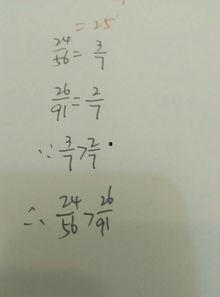 = 25
24/56 = 3/7
26/91 = 2/7
∵ 3/7 > 2/7
∴ 24/56 > 26/91